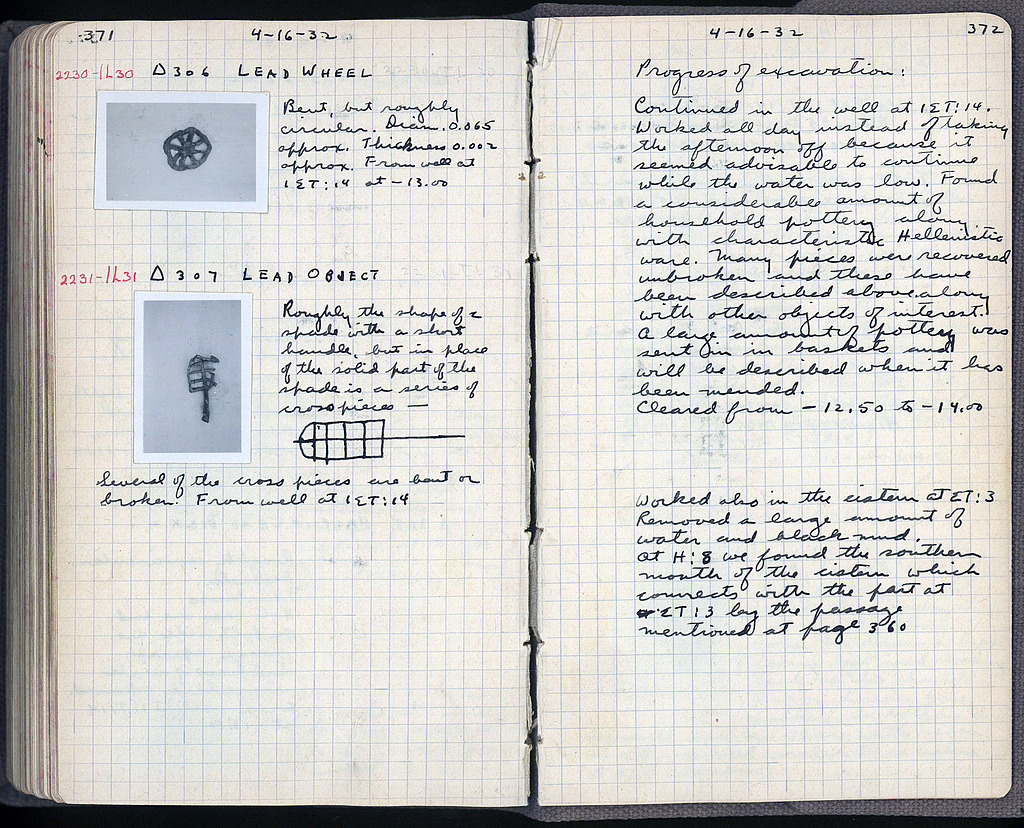 371
4-16-32
2230-IL30 Δ306 LEAD WHEEL
Bent, but roughly
circular. Diam. 0.065
approx. Thickness 0.002
approx. From well at
12Γ:14 at -13.00
2231-IL31 Δ307 LEAD OBJECT
Roughly the shape of a
spade with a short
handle, but in place
of the solid part of the
spade is a series of
cross pieces —
Several of the cross pieces are bent or
broken. From well at 12Γ:14
4-16-32
372
Progress of excavation:
Continued in the well at 12Γ:14.
Worked all day instead of taking
the afternoon off because it
seemed advisable to continue
while the water was low. Found
a considerable amount of
household pottery along
with characteristic Hellenistic
ware. Many pieces were recovered
unbroken and these have
been described above along
with other objects of interest.
A large amount of pottery was
sent in in baskets and
will be described when it has
been mended.
Cleared from -12.50 to -14.00
Worked also in the cistern at
Removed a large amount of
water and black mud.
At H:8 we found the southern
mouth of the cistern which
connects with the part at
by the passage
mentioned at page 360